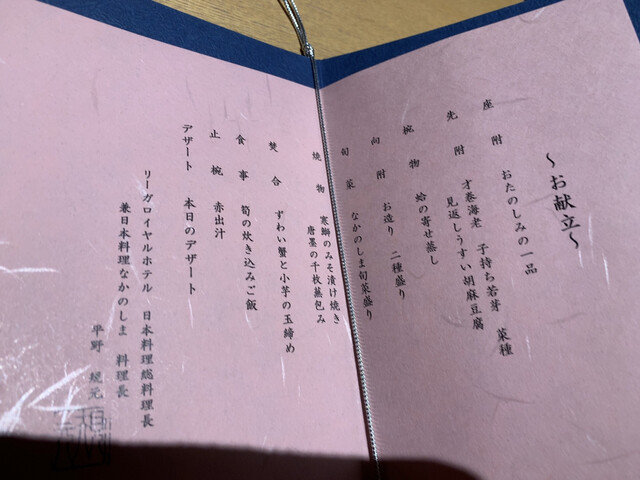 ～お献立～
座附 おたのしみの一品
先附 才巻海老 子持ち若芽 菜種
見返しうすい胡麻豆腐
椀物 蛤の寄せ蒸し
向附 お造り 二種盛り
旬菜 なかのしま旬菜盛り
焼物 寒鰤のみそ漬け焼き
唐墨の千枚蒸包み
焚合 ずわい蟹と小芋の玉締め
食事 筍の炊き込みご飯
止椀 赤出汁
デザート 本日のデザート
リーガロイヤルホテル 日本料理総料理長
兼日本料理なかのしま 料理長
平野 元